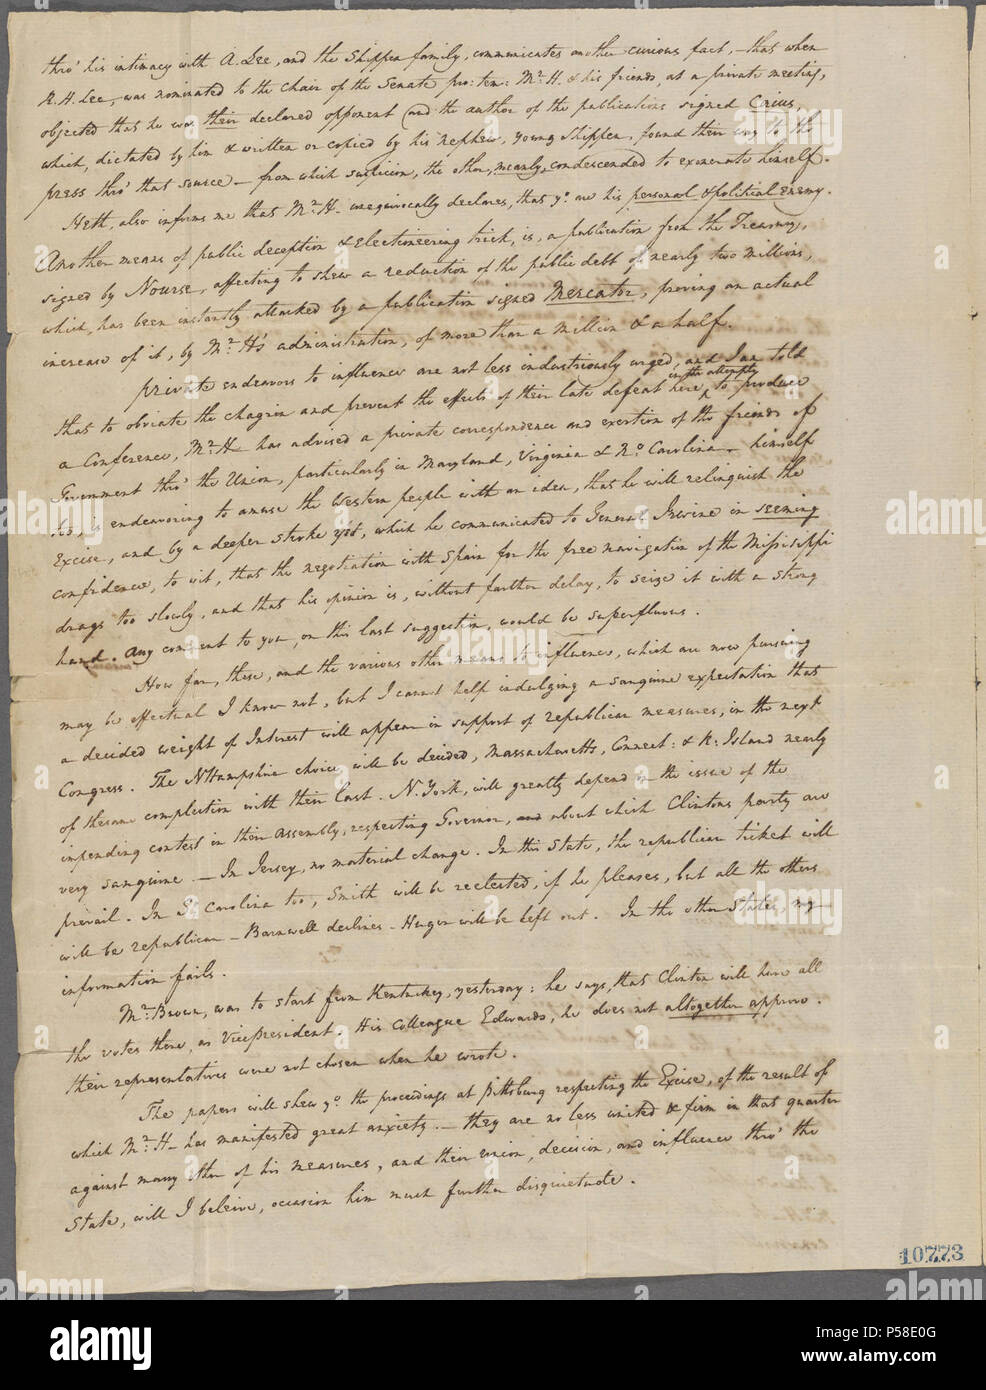 thro' his intimacy with A. Lee, and the Shippen family, communicates another curious fact, – that when
R. H. Lee, was nominated to the chair of the Senate pro: tem: Mr. H. & his friends, at a private meeting,
objected that he was their declared opponent (and the author of the publications signed Crius,
which, dictated by him & written or copied by his nephew, young Shippen, found their way to the
press thro' that source – from which suspicion, the other, meanly, condescended to exonerate himself.
Heth, also informs me that Mr. H– unequivocally declares, that yo. are his personal & political enemy.
Another means of public deception & Electioneering trick, is, a publication from the Treasury,
signed by Nourse, affecting to shew a reduction of the public debt of nearly two millions,
which, has been instantly attacked by a publication signed Mercator, proving an actual
increase of it, by Mr. H's administration, of more than a million & a half.
Private endeavors to influence are not less industriously urged, and I am told
that to obviate the chagrin and prevent the effects of their late defeat here, in the attempt to produce
a Conference, Mr. H– has advised a private correspondence and exertion of the friends of
Government thro' the Union, particularly in Maryland, Virginia & No. Carolina. himself
too, is endeavoring to amuse the Western people with an idea, that he will relinquish the
Excise, and by a deeper stroke yet, which he communicated to General Irvine in seeming
confidence, to wit, that the negotiation with Spain for the free navigation of the Mississippi
drags too slowly, and that his opinion is, without farther delay, to seize it with a strong
hand. Any comment to you, on this last suggestion, would be superfluous.
How far, these, and the various other means to influence, which are now pursuing
may be effectual I know not, but I cannot help indulging a sanguine expectation that
a decided weight of Interest will appear in support of republican measures, in the next
Congress. The N Hampshire choice will be decided, Massachusetts, Connect: & R: Island nearly
of the same complection with their last. N. York, will greatly depend on the issue of the
impending contest in their Assembly, respecting Governor, and about which Clintons party are
very sanguine. – In Jersey, no material change. In this State, the republican ticket will
prevail. In So. Carolina too, Smith will be reelected, if he pleases, but all the others
will be republican – Barnwell declines – Huger will be left out. In the other States, my
information fails.
Mr. Brown, was to start from Kentuckey, yesterday: he says, that Clinton will have all
the votes there, as Vice president. His Colleague Edwards, he does not altogether approve.
their representatives were not chosen when he wrote.
The papers will shew yo. the proceedings at Pittsburg respecting the Excise, of the result of
which Mr. H– has manifested great anxiety. – they are no less united & firm in that quarter
against many other of his measures, and their union, decision, and influence thro' the
State, will I beleive, occasion him much further disquietude.
10773
alamy
Image ID: P58E0G
www.alamy.com